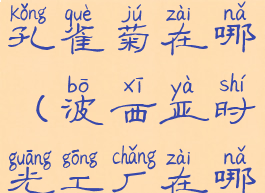 kǒng què jú zài nǎ
孔雀菊在哪
bō xī yà shí
（波西亚时
guāng gōng chǎng zài nǎ
光工厂在哪